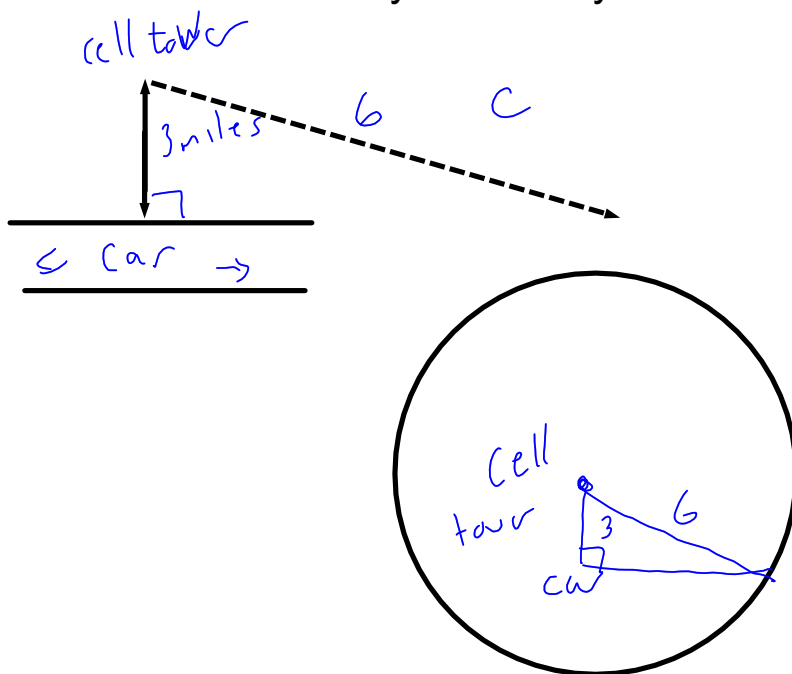 cell tower
6 C
3 miles
≤ Car →
Cell
tower
3 6
car